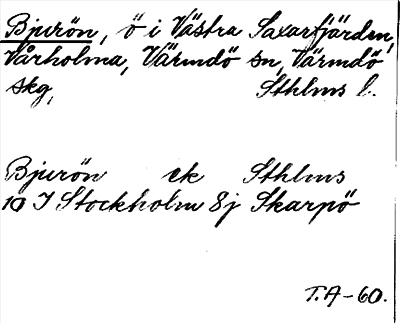 Bjurön, ö i Västra Saxarfjärden,
Vårholma, Värmdö sn, Värmdö
skg, Sthlms l.
Bjurön ek Sthlms
10 I Stockholm 8j Skarpö
T.A-60.